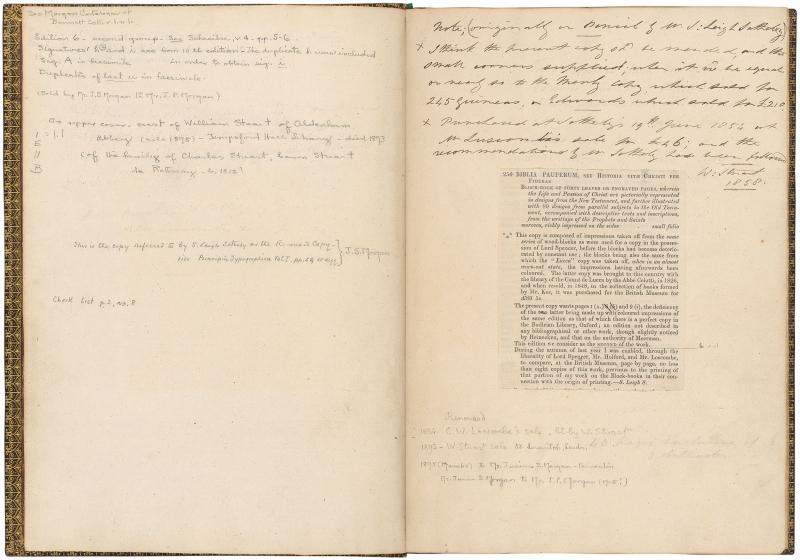 See Morgan Catalogue of
Bennett Coll.
Edition 6 - second group - See Schreiber, v.4 - pp. 5-6
Signatures h and i are from 10th edition - The duplicate h was included
Sig. A in facsimile in order to obtain sig. i
Duplicate of last u in facsimile.
(Sold by Mr. J.S. Morgan to Mr. J.P. Morgan)
On upper cover crest of William Stuart of Aldenham
Abbey (sale 1895) - Tempsford Hall Library - died 1893
(of the family of Charles Stuart, Baron Stuart
de Rothesay
This is the copy referred to by S. Leigh Sotheby as the Renouard Copy -
vide Principia Typographica Vol. I.
J.S. Morgan
Check List p. 2, no. 8
Note, (originally in Daniel by W. S. Leigh Sotheby)
x I think the present copy shd be mended, and the
small corners supplied, when it wd be equal
or nearly so to the copy, which sold for
245 Guineas, or Edwards which sold for £210
x Purchased at Sotheby's 19th June 1854 at
sale for £46; and the
recommendations of Mr Sotheby had been followed
W: Stuart
1858.
250 BIBLIA PAUPERUM, SEU HISTORIA VITÆ CHRISTI PER
FIGURAS
BLOCK-BOOK OF FORTY LEAVES OR ENGRAVED PAGES, wherein
the Life and Passion of Christ are pictorially represented
in designs from the New Testament, and further illustrated
with 80 designs from parallel subjects in the Old Testa-
ment, accompanied with descriptive texts and inscriptions,
from the writings of the Prophets and Saints
morocco, richly impressed on the sides small folio
*** This copy is composed of impressions taken off from the same
series of wood-blocks as were used for a copy in the posses-
sion of Lord Spencer, before the blocks had become deterio-
rated by constant use; the blocks being also the same from
which the "Lucca" copy was taken off, when in an almost
worn-out state, the impressions having afterwards been
coloured. The latter copy was brought to this country with
the library of the Count de Lucca by the Abbé Celotti, in 1826,
and when resold, in 1848, in the collection of books formed
by Mr. Ker, it was purchased for the British Museum for
The present copy wants pages 1 (a.) and 9 (i), the deficiency
of the latter being made up with coloured impressions of
the same edition as that of which there is a perfect copy in
the Bodleian Library, Oxford; an edition not described in
any bibliographical or other work, though slightly noticed
by Heinecken, and that on the authority of Meerman.
This edition we consider as the second of the work.
During the autumn of last year I was enabled, through the
liberality of Lord Spencer, Mr. Holford, and Mr. Loscombe,
to compare, at the British Museum, page by page, no less
than eight copies of this work, previous to the printing of
that portion of my work on the Block-books in their con-
nection with the origin of printing.—S. Leigh S.
Renouard
1854 C.W. Loscombe's sale, bt. by W. Stuart
1895 - W. Stuart sale to Quaritch, London
1898 (March) to Mr. Junius S. Morgan - Princeton
Mr. Junius S. Morgan to Mr. J.P. Morgan